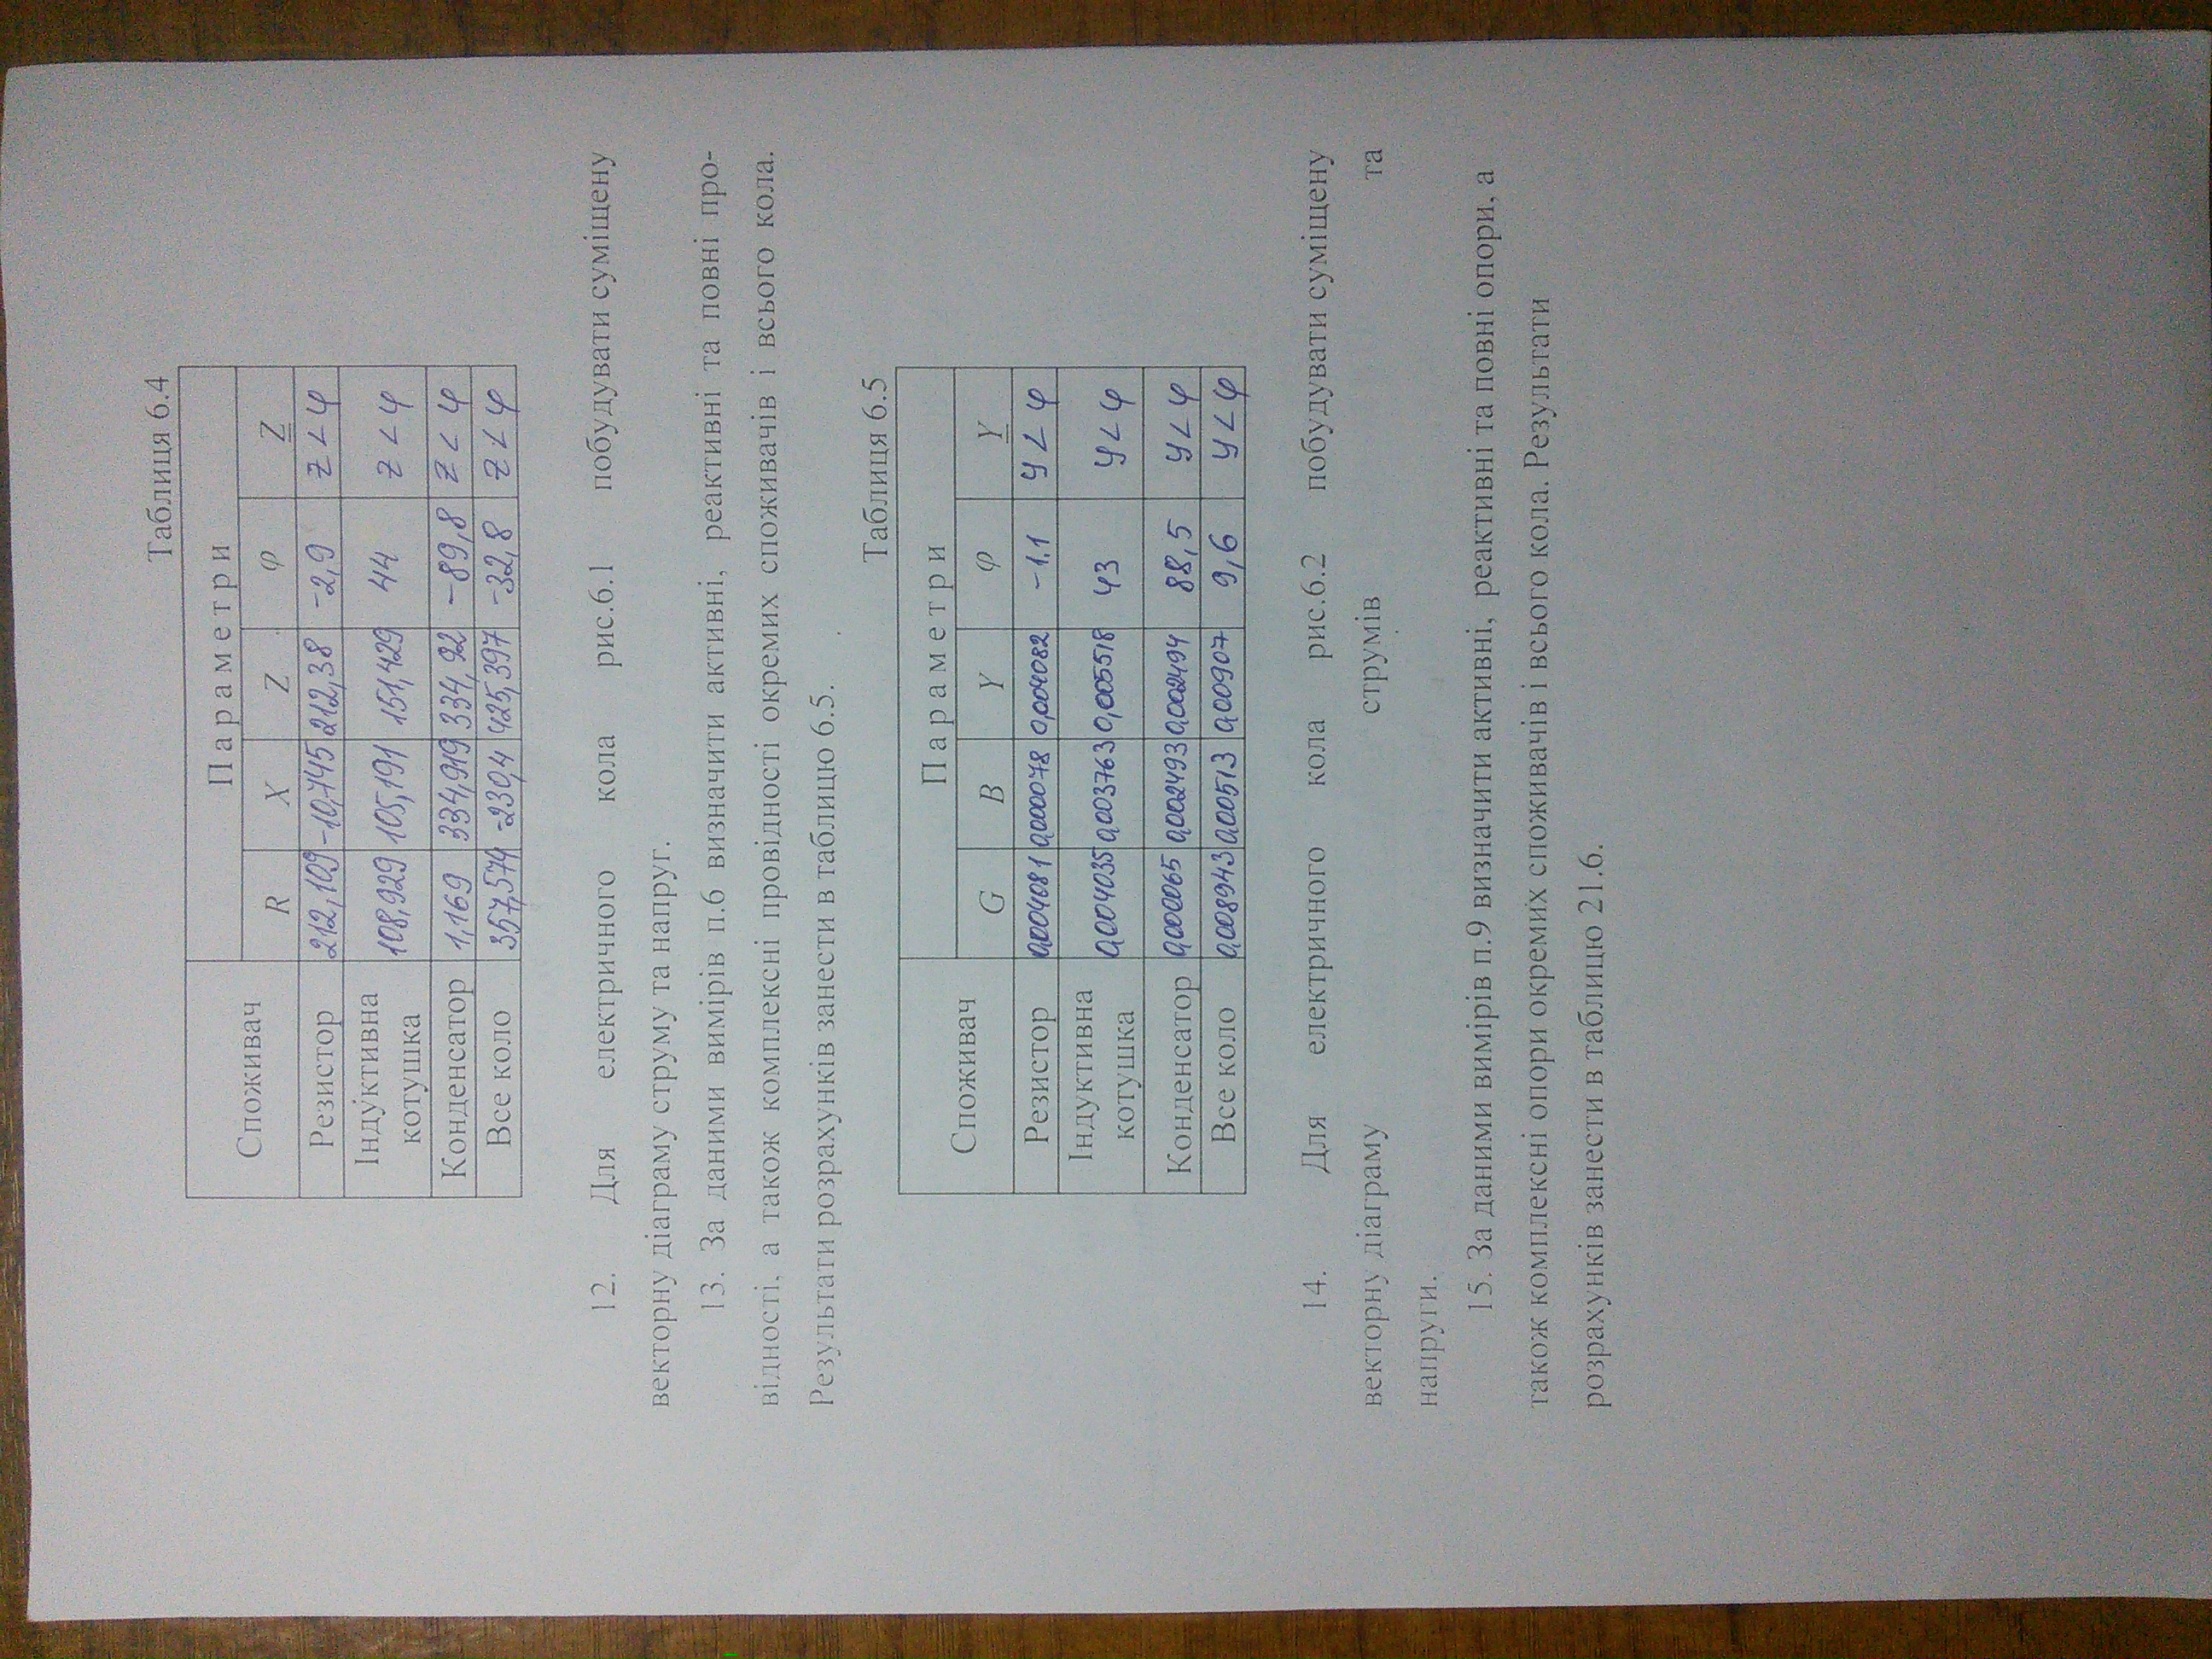 Таблиця 6.4
Споживач Параметри
R X Z φ Z
Резистор 212,109 -10,745 212,38 -2,9 Z∠φ
Індуктивна котушка 108,929 105,191 151,429 44 Z∠φ
Конденсатор 1,169 334,919 334,92 -89,8 Z∠φ
Все коло 357,574 -230,4 425,397 -32,8 Z∠φ
12. Для електричного кола рис.6.1 побудувати суміщену
векторну діаграму струму та напруг.
13. За даними вимірів п.6 визначити активні, реактивні та повні про-
відності, а також комплексні провідності окремих споживачів і всього кола.
Результати розрахунків занести в таблицю 6.5.
Таблиця 6.5
Споживач Параметри
G B Y φ Y
Резистор 0,004081 0,000078 0,004082 -1,1 y∠φ
Індуктивна котушка 0,004035 0,003763 0,005518 43 y∠φ
Конденсатор 0,000065 0,002493 0,002494 88,5 y∠φ
Все коло 0,008943 0,00513 0,00907 9,6 y∠φ
14. Для електричного кола рис.6.2 побудувати суміщену
векторну діаграму струмів та
напруги.
15. За даними вимірів п.9 визначити активні, реактивні та повні опори, а
також комплексні опори окремих споживачів і всього кола. Результати
розрахунків занести в таблицю 21.6.